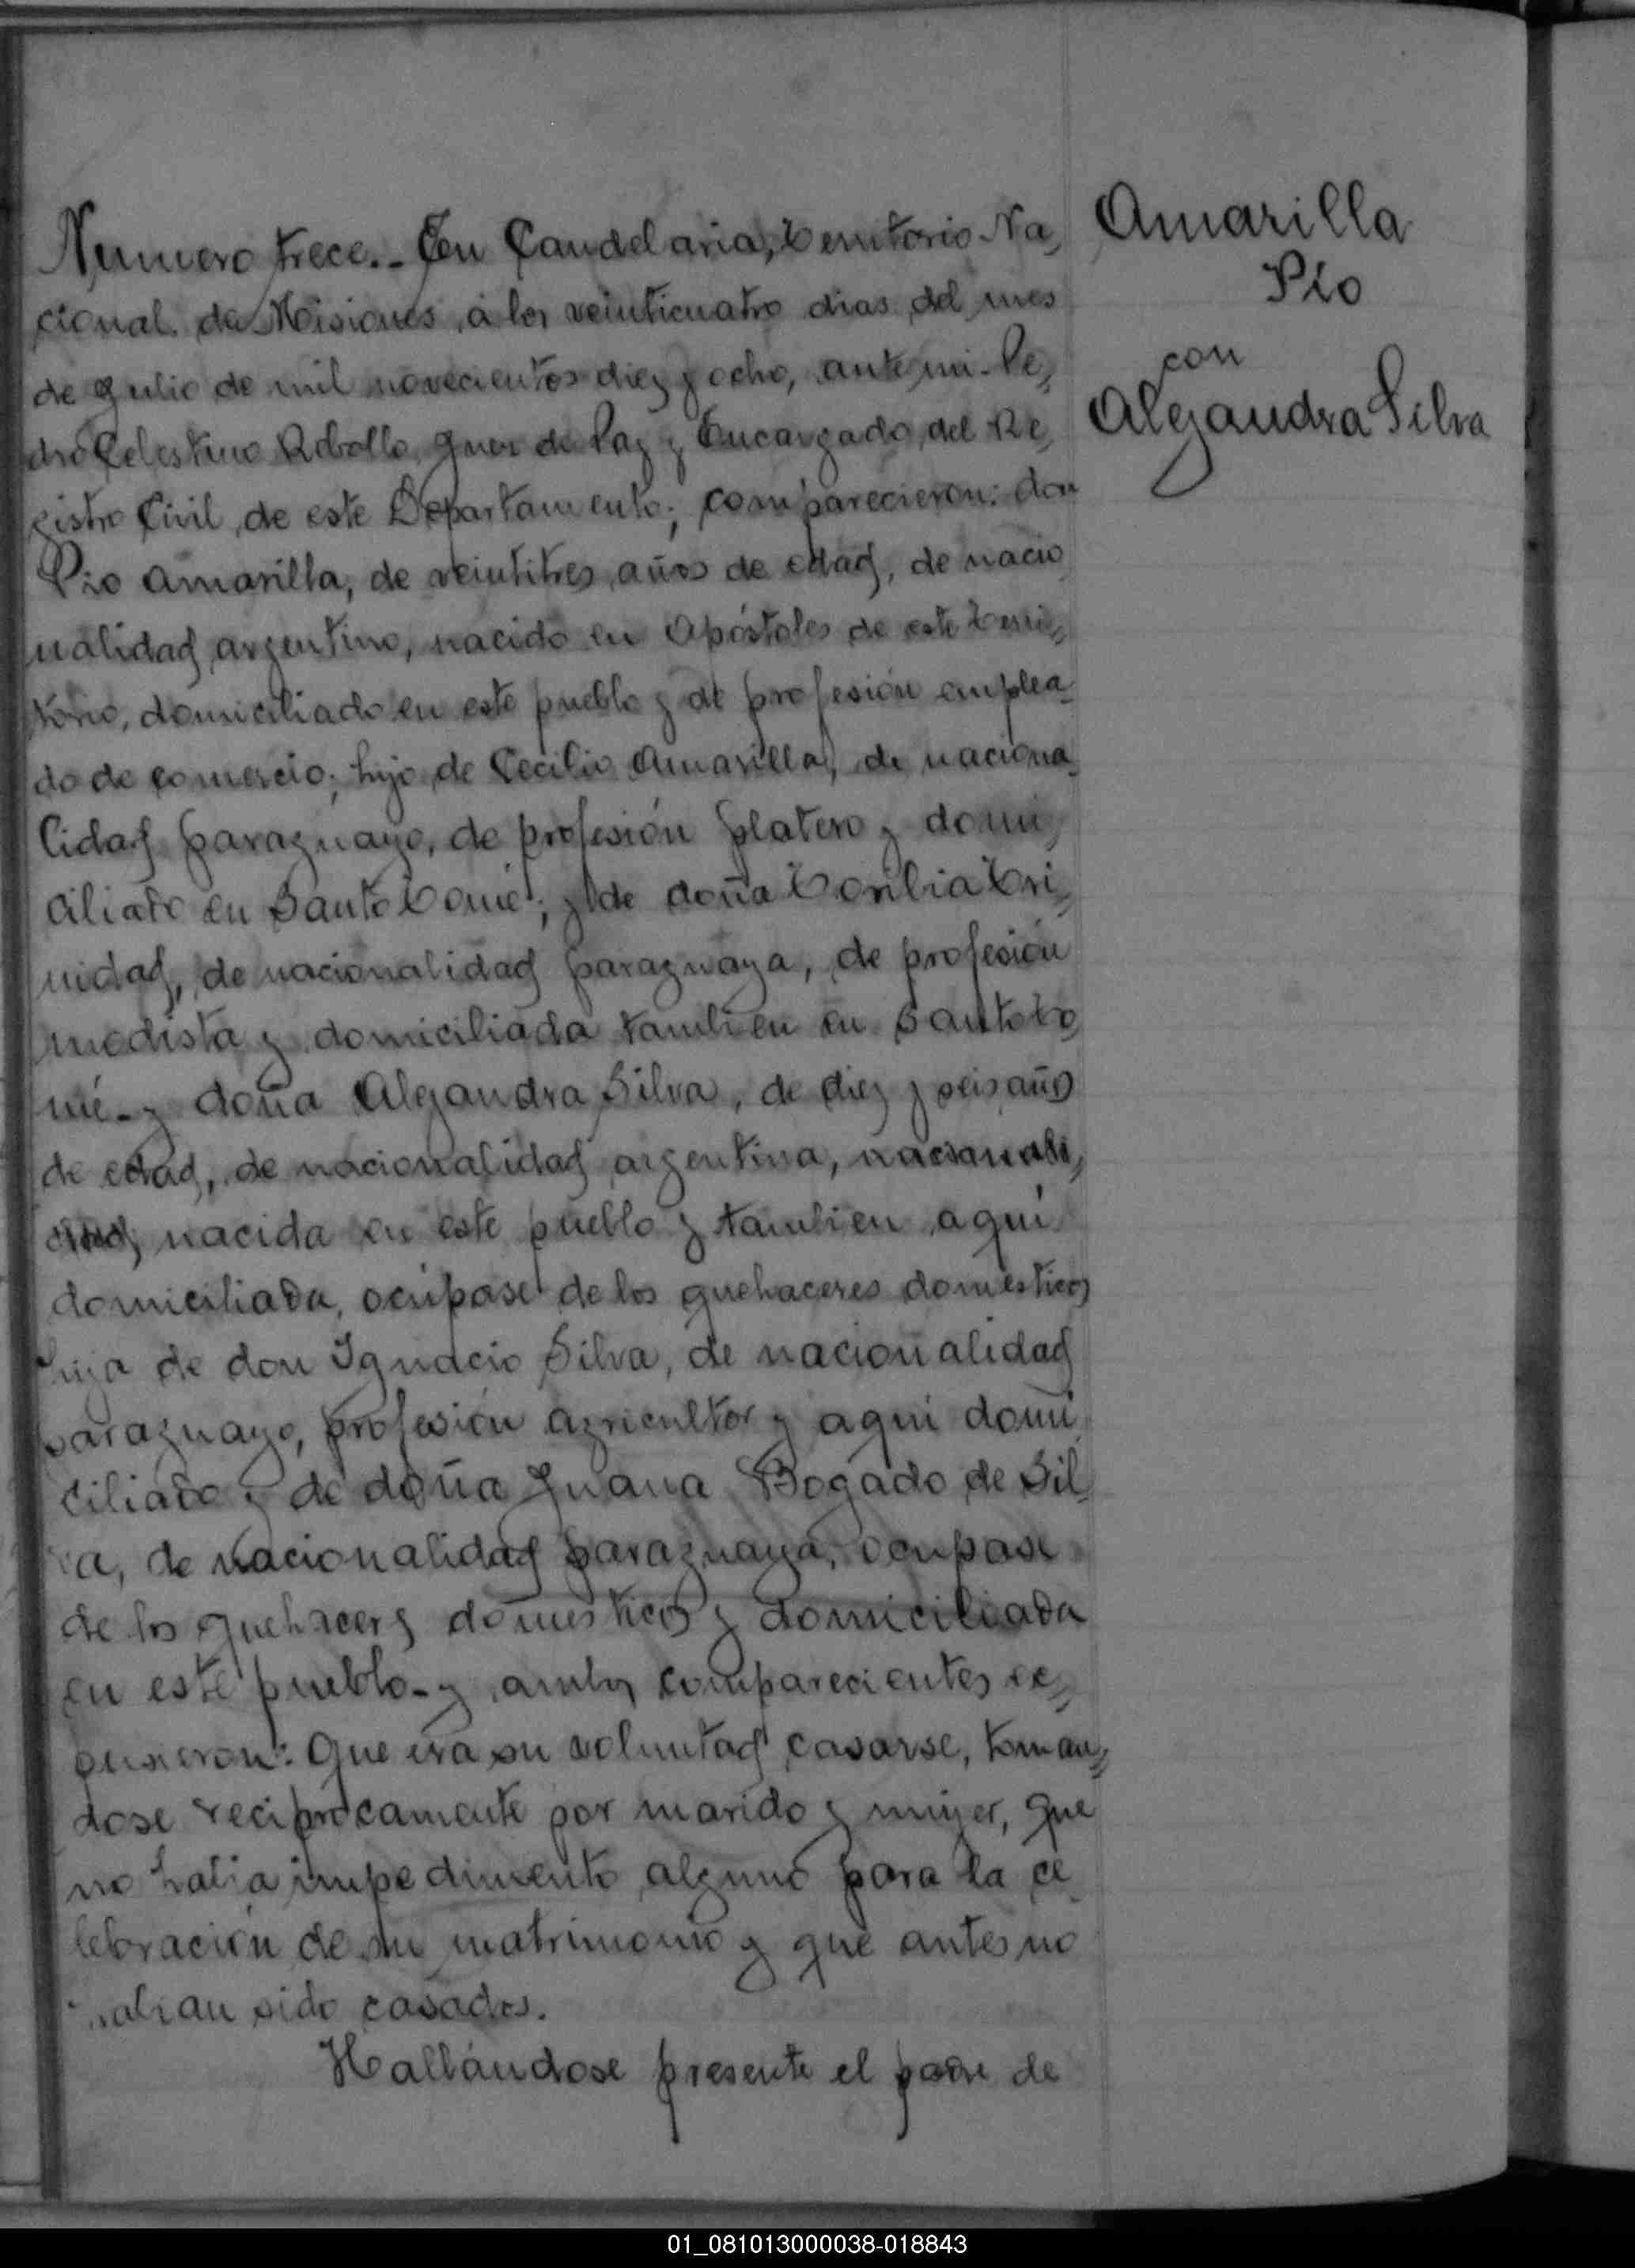 Numero trece.- En Candelaria, Territorio Na,
cional de Misiones, á los veinticuatro dias del mes
de Julio de mil novecientos diez y ocho, ante mi Pe,,
dro Celestino Rebollo, Juez de Paz y Encargado del Re,
gistro Civil de este Departamento; comparecieron: don
Pio Amarilla, de veintitres años de edad, de nacio
nalidad argentino, nacido en Apóstoles de este Terri,,
torio, domiciliado en este pueblo y de profesión emplea-
do de comercio; hijo de Cecilio Amarilla, de naciona-
lidad paraguayo, de profesión platero y domi,
ciliado en Santo Tomé; y de doña Torilia Tri,,
nidad, de nacionalidad paraguaya, de profesión
modista y domiciliada tambien en Santo To,
mé.- y doña Alejandra Silva, de diez y seis años
de edad, de nacionalidad argentina, nacionali,
dad, nacida en este pueblo y tambien aquí
domiciliada, ocúpase de los quehaceres domésticos
hija de don Ignacio Silva, de nacionalidad
paraguayo, profesión agricultor y aqui domi
ciliado y de doña Juana Bogado de Sil
va, de nacionalidad paraguaya, ocupase
de los quehaceres domesticos y domiciliada
en este pueblo.- y ambos comparecientes ex,,
pusieron: Que era su voluntad casarse, toman,,
dose reciprocamente por marido y mujer, que
no habia impedimento alguno para la ce
lebración de su matrimonio y que antes no
habian sido casados.
Hallándose presente el padre de
Amarilla
Pío
con
Alejandra Silva
01_081013000038-018843